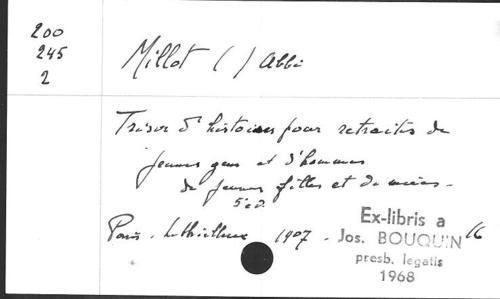 200
245
2
Millot ( ) Abbé
Trésor d'histoires pour retraites de
jeunes gens et d'hommes
de jeunes filles et de mères.
5e éd.
Paris. Lethielleux 1907. 16
Ex-libris a
Jos. BOUQUIN
presb. legatis
1968